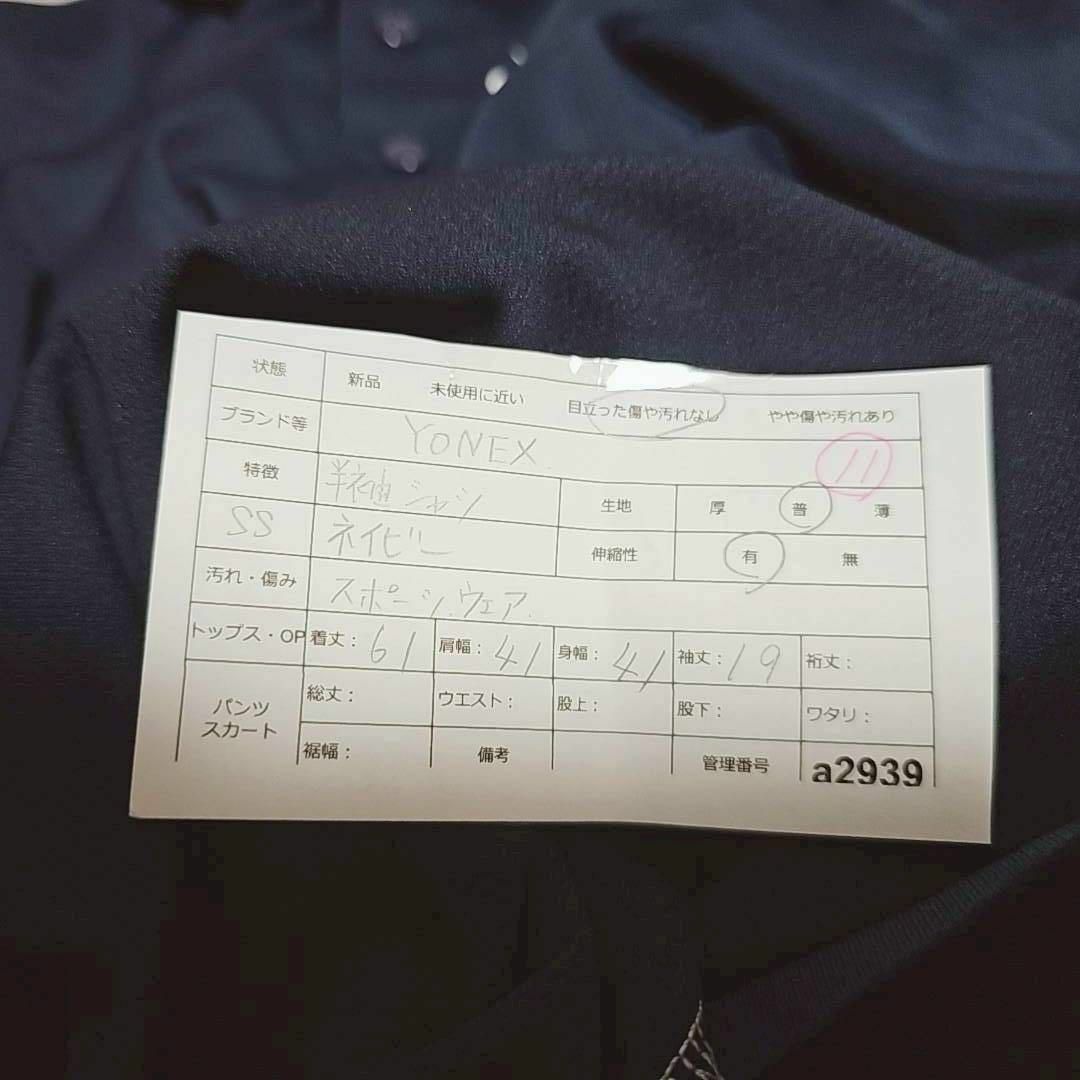 状態 新品 未使用に近い 目立った傷や汚れなし やや傷や汚れあり
ブランド等 YONEX. 11
特徴 半袖シャツ 生地 厚 普 薄
SS ネイビー 伸縮性 有 無
汚れ・傷み スポーツ.ウェア.
トップス・OP 着丈：61 肩幅：41 身幅：41 袖丈：19 裄丈：
パンツ スカート 総丈： ウエスト： 股上： 股下： ワタリ：
裾幅： 備考 管理番号 a2939